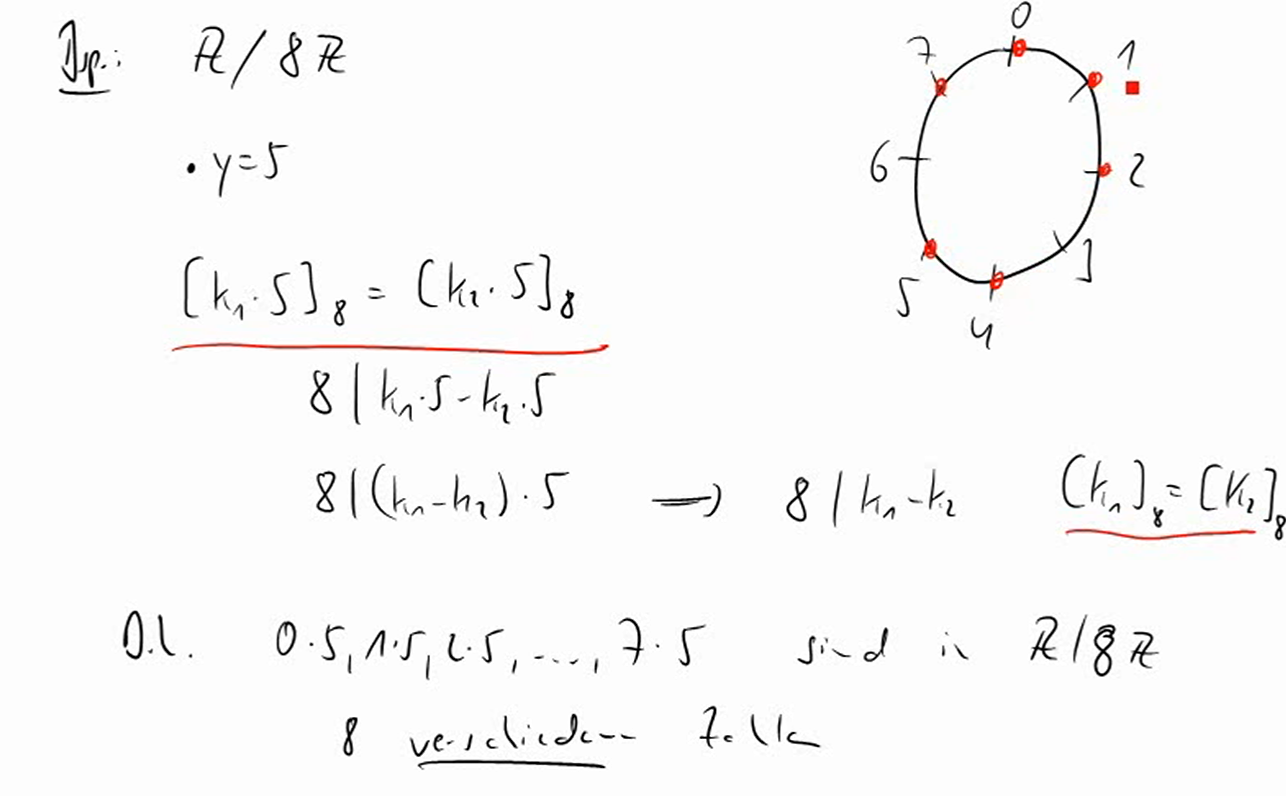 Bsp.: ℤ/8ℤ
• y=5
[k₁·5]₈ = [k₂·5]₈
8 | k₁·5-k₂·5
8|(k₁-k₂)·5 ⟹ 8 | k₁-k₂ [k₁]₈=[k₂]₈
D.h. 0·5, 1·5, 2·5, ..., 7·5 sind in ℤ/8ℤ
8 verschiedene Zahlen
0
1
2
3
4
5
6
7